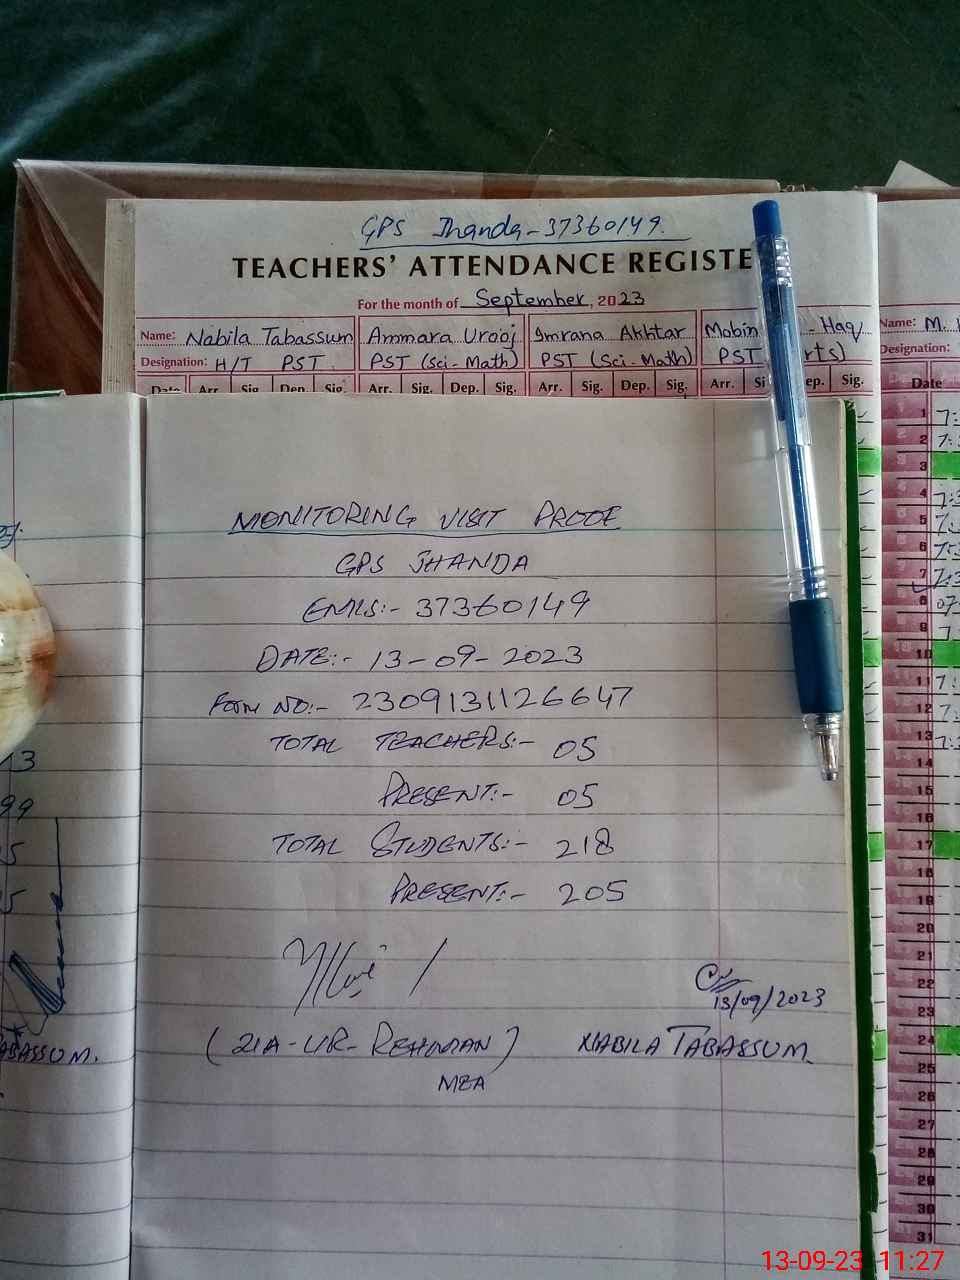 GPS Jhanda - 37360149.
TEACHERS' ATTENDANCE REGISTE
For the month of September, 2023
Name: Nabila Tabassum Ammara Urooj Imrana Akhtar Mobin - Haq Name: M.
Designation: H/T PST. PST (Sci-Math) PST (Sci-Math) PST rts) Designation:
Date Arr. Sig. Dep. Sig. Arr. Sig. Dep. Sig. Arr. Sig. Dep. Sig. Arr. Si ep. Sig. Date
MONITORING VISIT PROOF
GPS JHANDA
EMIS:- 37360149
DATE:- 13-09-2023
Form NO:- 2309131126647
TOTAL TEACHERS:- 05
PRESENT:- 05
TOTAL STUDENTS:- 218
PRESENT:- 205
13/09/2023
(ZIA-UR-REHMAN) NABILA TABASSUM.
MEA
ABASSUM.
1
2
3
4
5
6
7
8
9
10
11
12
13
14
15
16
17
18
19
20
21
22
23
24
25
26
27
28
29
30
31
13-09-23 11:27